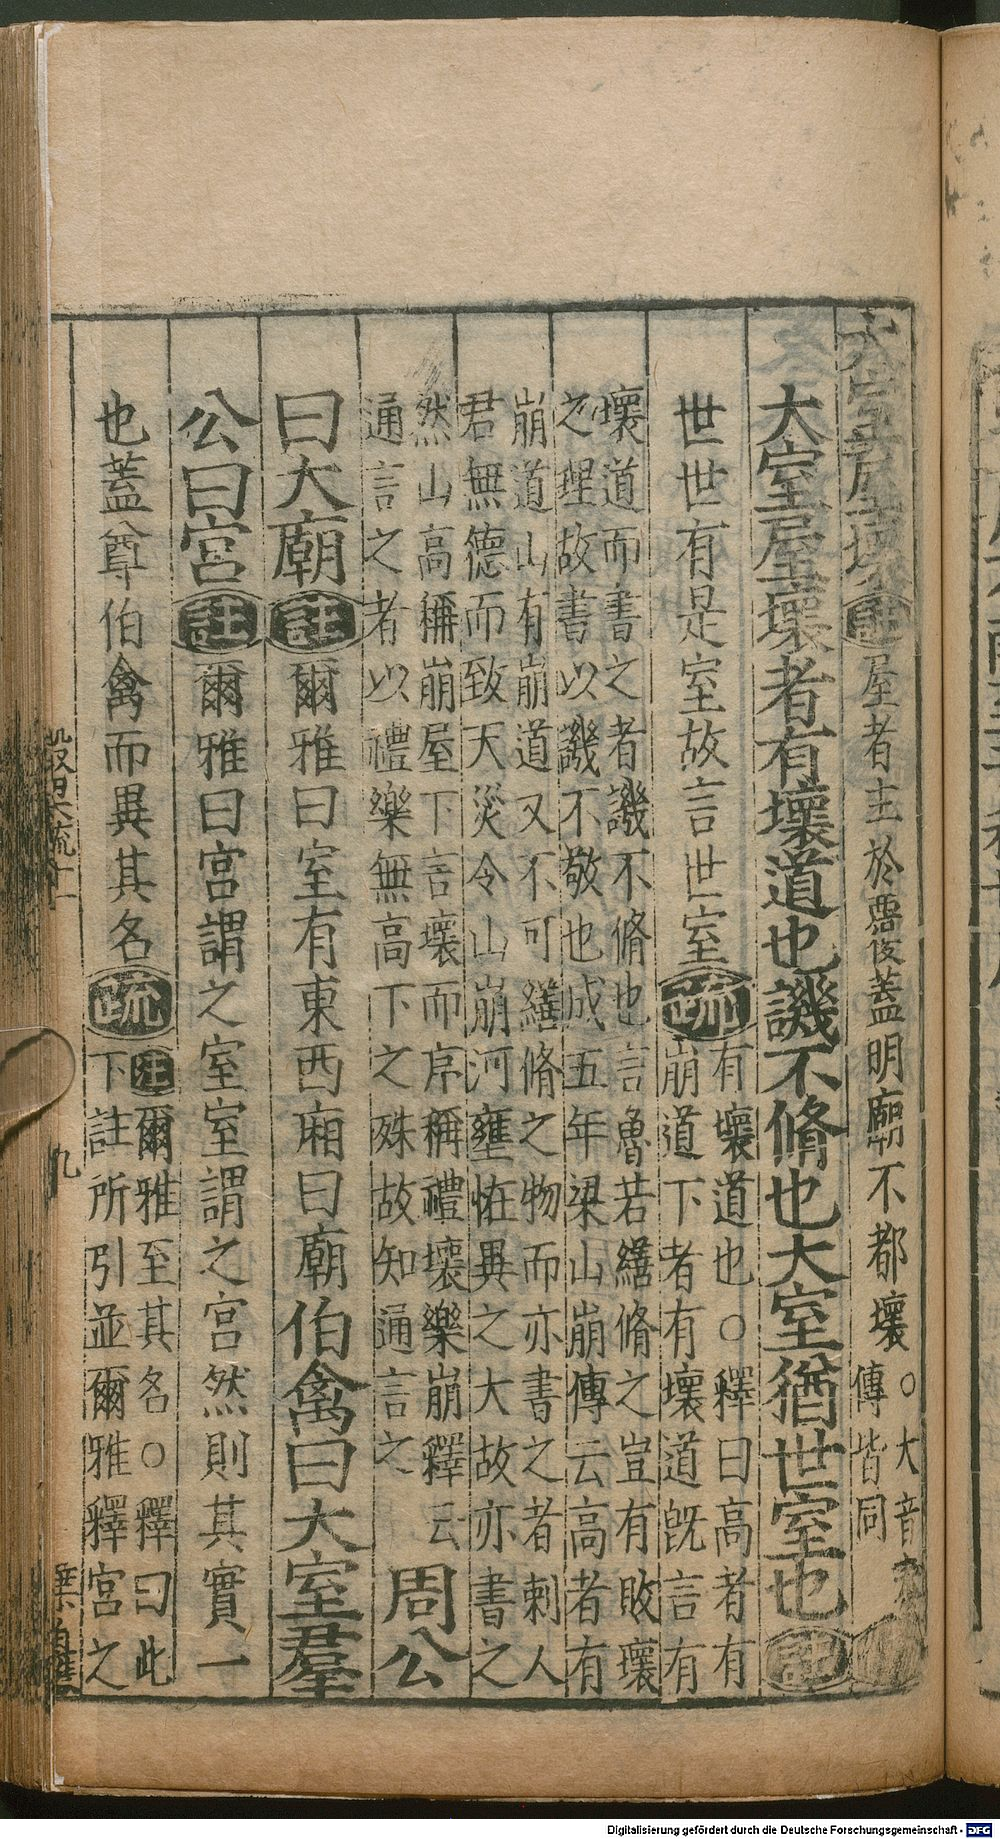 大室屋壞註屋者主於覆蓋明廟不都壞○大音泰傳皆同
大室屋壞者有壞道也譏不脩也大室猶世室也註
世世有是室故言世室疏有壞道也○釋曰高者有崩道下者有壞道既言有
壞道而書之者譏不脩也言魯若繕脩之豈有敗壞之理故書以譏不敬也成五年梁山崩傳云高者有
崩道山有崩道又不可繕脩之物而亦書之者刺人君無德而致天災令山崩河壅怪異之大故亦書之
然山高稱崩屋下言壞而序稱禮壞樂崩釋云通言之者以禮樂無高下之殊故知通言之周公
曰大廟註爾雅曰室有東西廂曰廟伯禽曰大室羣
公曰宮註爾雅曰宮謂之室室謂之宮然則其實一
也蓋尊伯禽而異其名疏注爾雅至其名○釋曰此下註所引並爾雅釋宮之
九
Digitalisierung gefördert durch die Deutsche Forschungsgemeinschaft - DFG